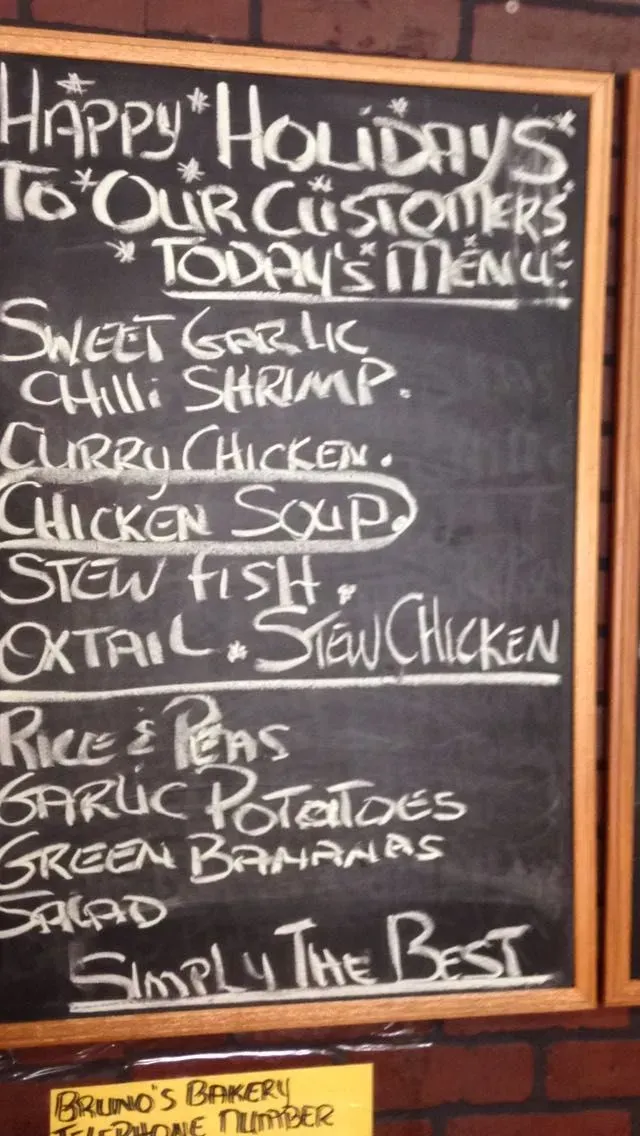 HAPPY HOLIDAYS
TO OUR CUSTOMERS
TODAY'S MENU:
SWEET GARLIC
CHILLI SHRIMP.
CURRY CHICKEN.
CHICKEN SOUP.
STEW FISH.
OXTAIL. STEW CHICKEN
RICE & PEAS
GARLIC POTATOES
GREEN BANANAS
SALAD
SIMPLY THE BEST
BRUNO'S BAKERY
TELEPHONE NUMBER